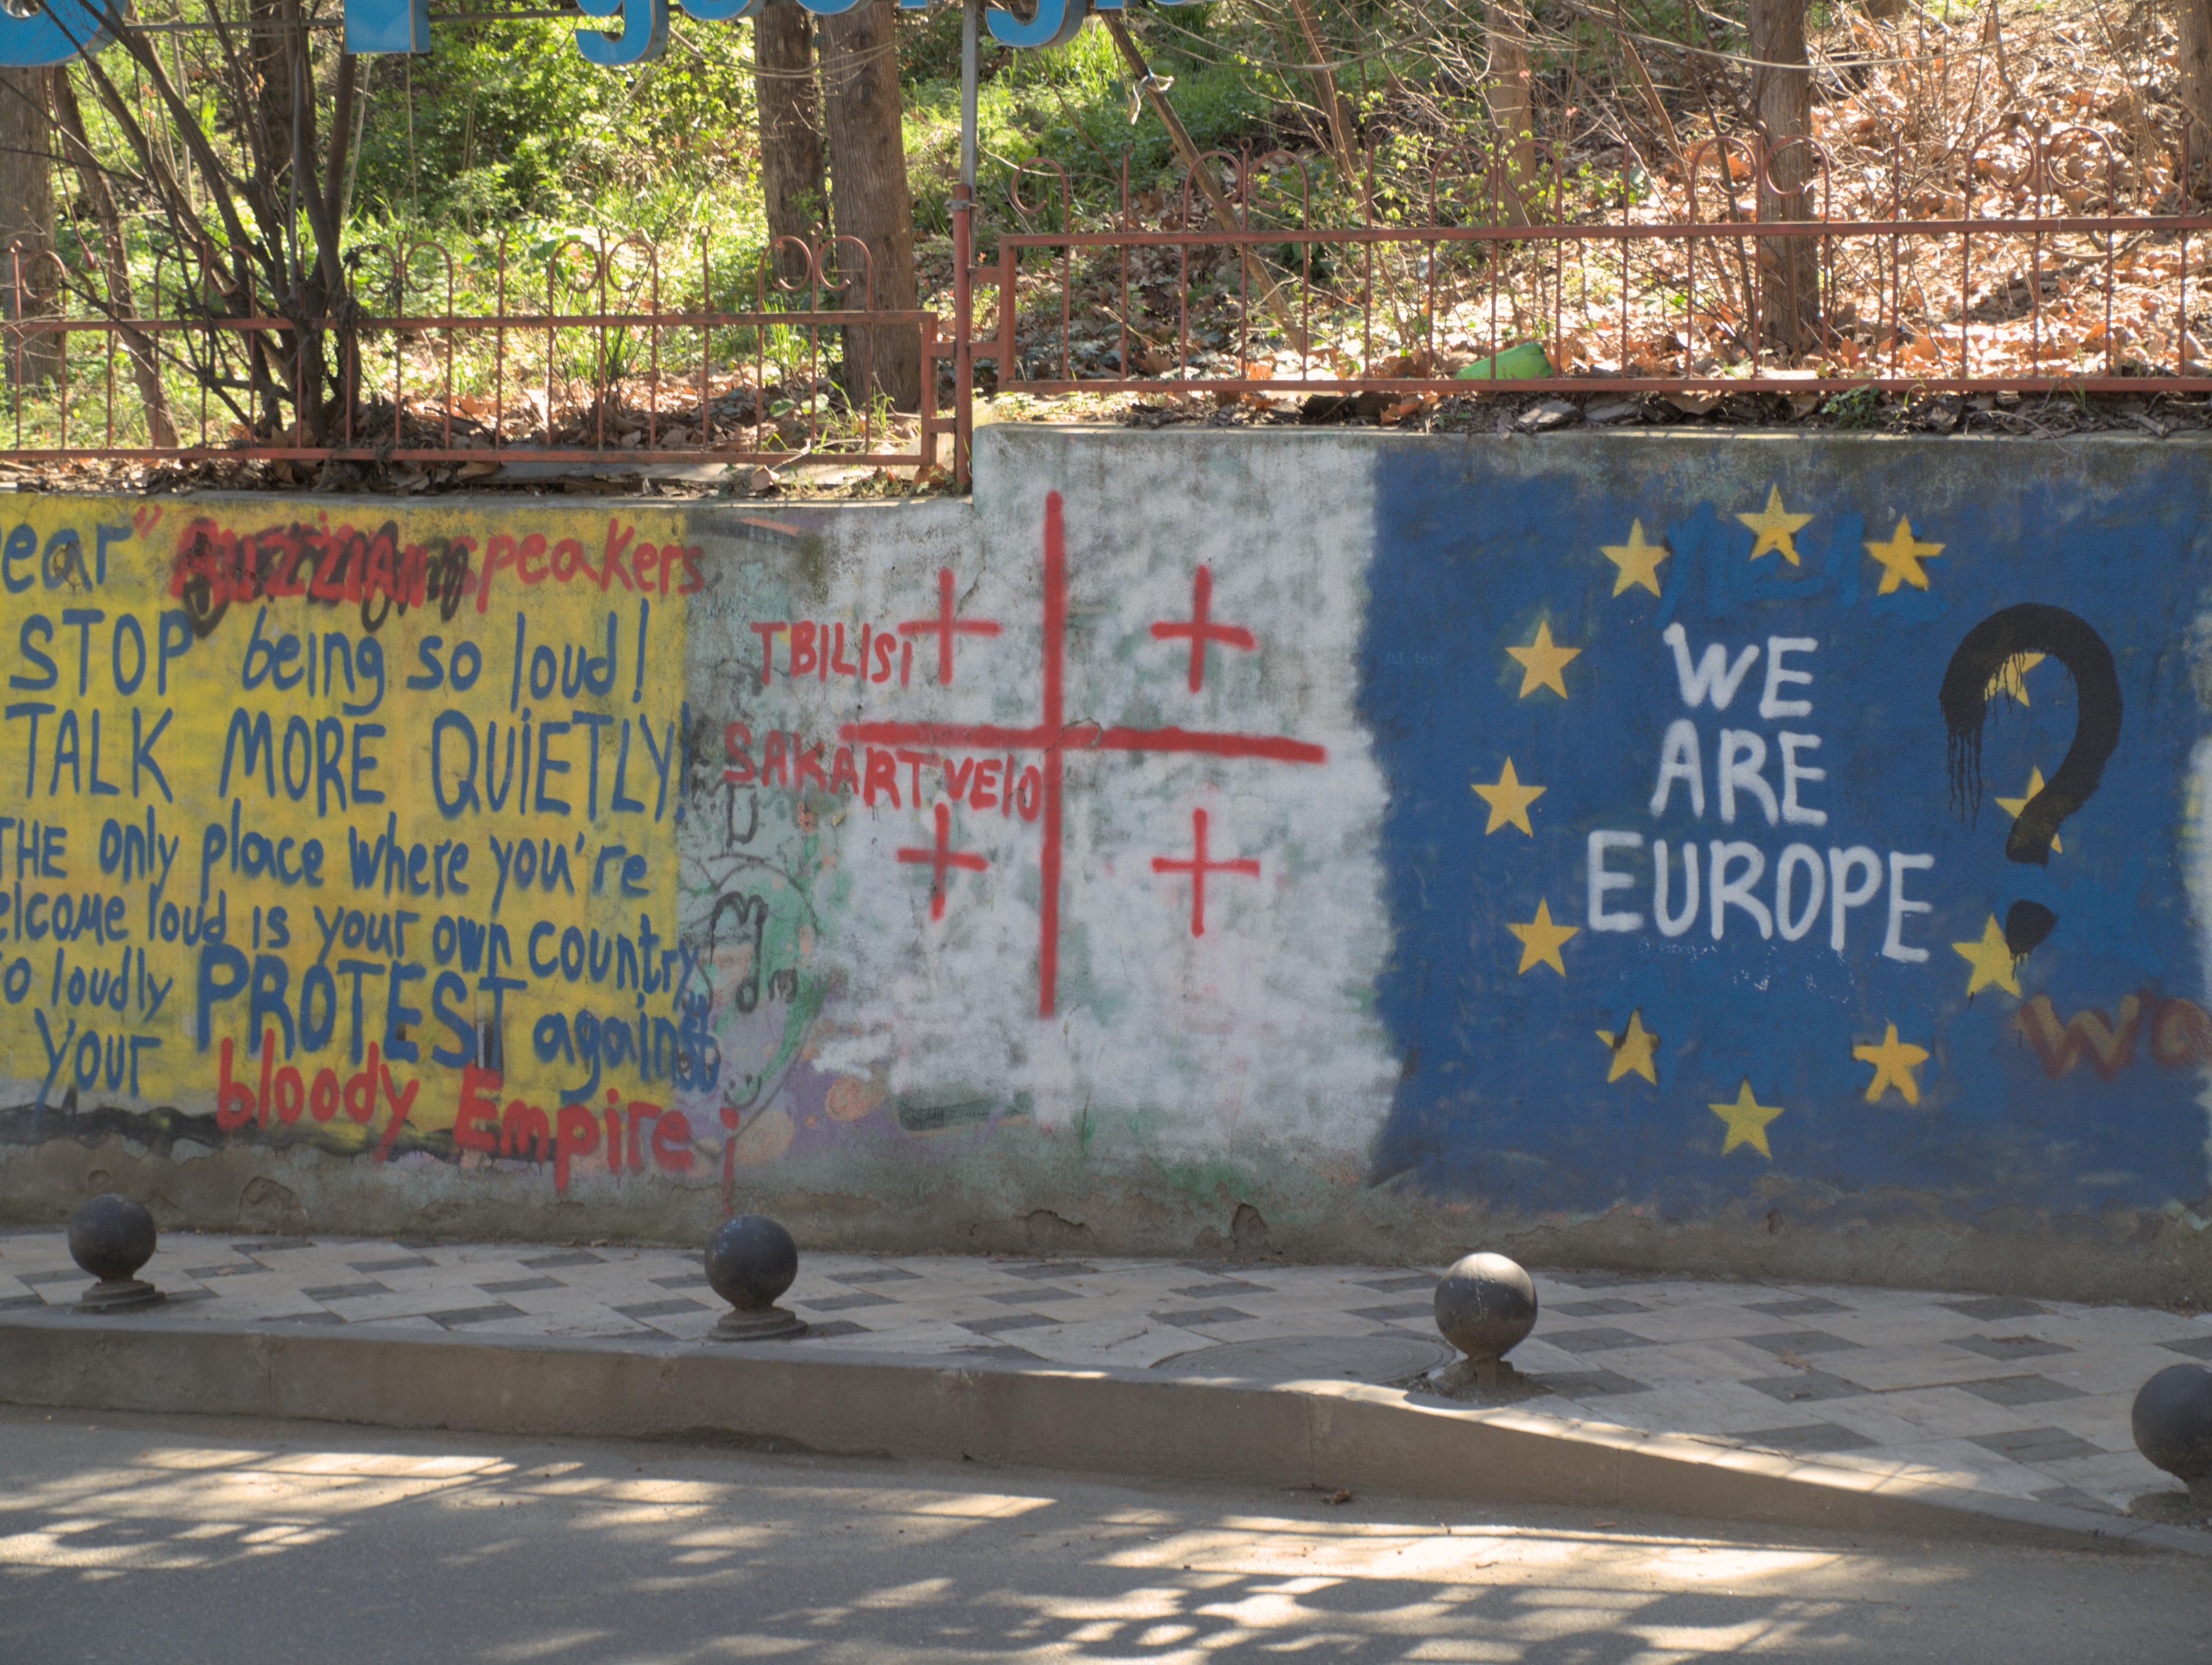 ear " speakers
STOP being so loud!
TALK MORE QUIETLY!
THE only place where you're
elcome loud is your own country
o loudly PROTEST against
your bloody Empire!
TBILISI
SAKARTVELO
WE
ARE
EUROPE
?